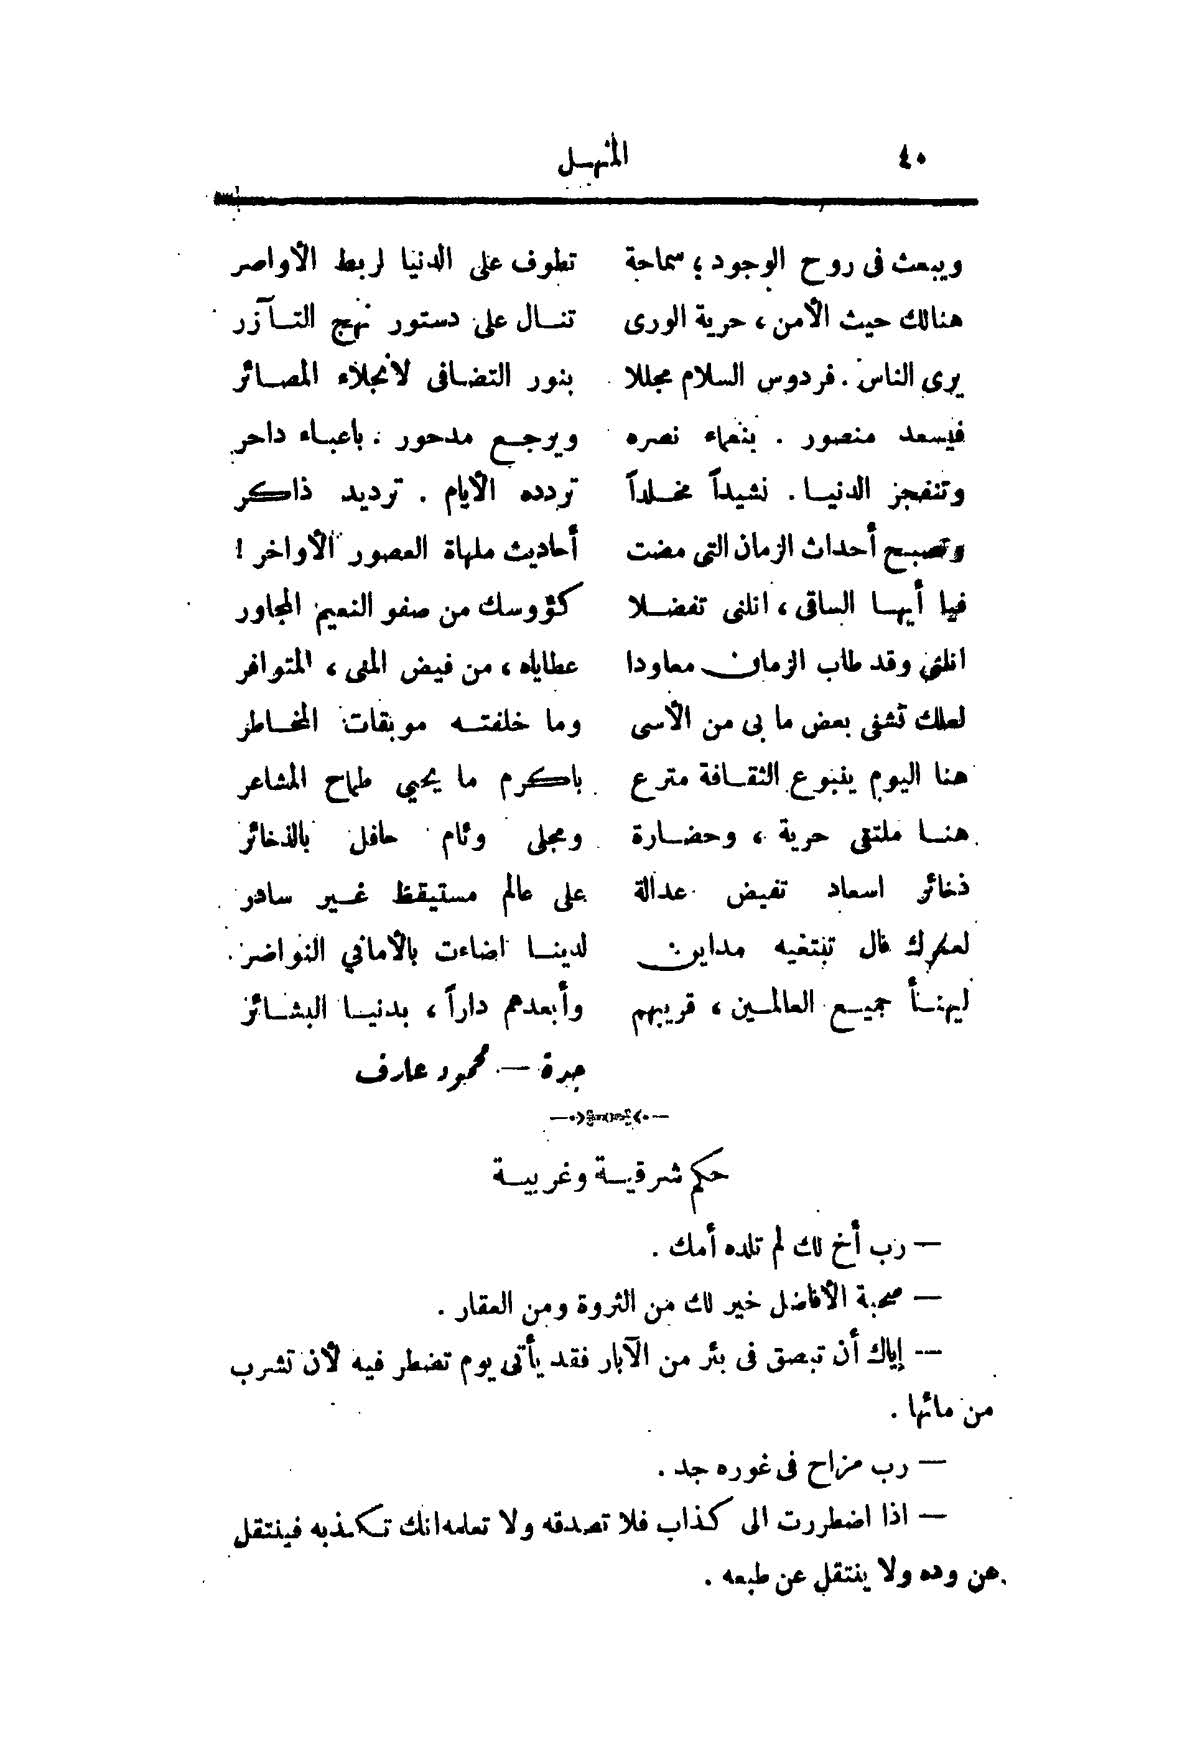 ٤٠
المنهل
ويبعث فى روح الوجود ؛ سماحة تطوف على الدنيا لربط الأواصر
هنالك حيث الأمن ، حرية الورى تنــال على دستور نهج التــآزر
يرى الناس . فردوس السلام مجللا بنور التضافى لانجلاء المصــائر
فيسعد منصور . بنعماء نصره ويرجــع مدحور . باعبــاء داحر
وتنفجز الدنيــا . نشيداً مخــلداً تردده الأيام . ترديد ذاكر
وتصبــح أحداث الزمان التى مضت أحاديث ملهاة العصور الأواخر !
فيا أيهــا الساقى ، انلنى تفضــلا كؤوسك من صفو النعيم المجاور
انلنى وقد طاب الزمان معاودا عطاياه ، من فيض المنى ، المتوافر
لعلك تشفى بعض ما بى من الأسى وما خلفتــه موبقات المخــاطر
هنا اليوم ينبوع الثقــافة مترع باكرم ما يحيي طماح المشاعر
هنــا ملتقى حرية ، وحضــارة ومجلى وئام حافل بالذخائر
ذخائر اسعاد تفيض عدالة على عالم مستيقظ غــير سادر
لعمرك فال تبتغيه مداين لدينــا اضاءت بالأماني النواضر
ليهنــأ جميــع العالمــين ، قريبهم وأبعدهم داراً ، بدنيــا البشــائر
جدة — محمود عارف
حكم شرقيــة وغربيــة
— رب أخ لك لم تلده أمك .
— صحبة الأفاضل خير لك من الثروة ومن العقار .
— إياك أن تبصق فى بئر من الآبار فقد يأتى يوم تضطر فيه لأن تشرب
من مائها .
— رب مزاح فى غوره جد .
— اذا اضطررت الى كذاب فلا تصدقه ولا تعلمه انك تكذبه فينتقل
عن وده ولا ينتقل عن طبعه .